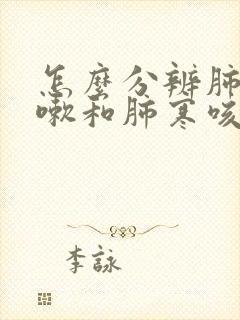 怎麼分辨肺
嗽和肺寒咳
李詠